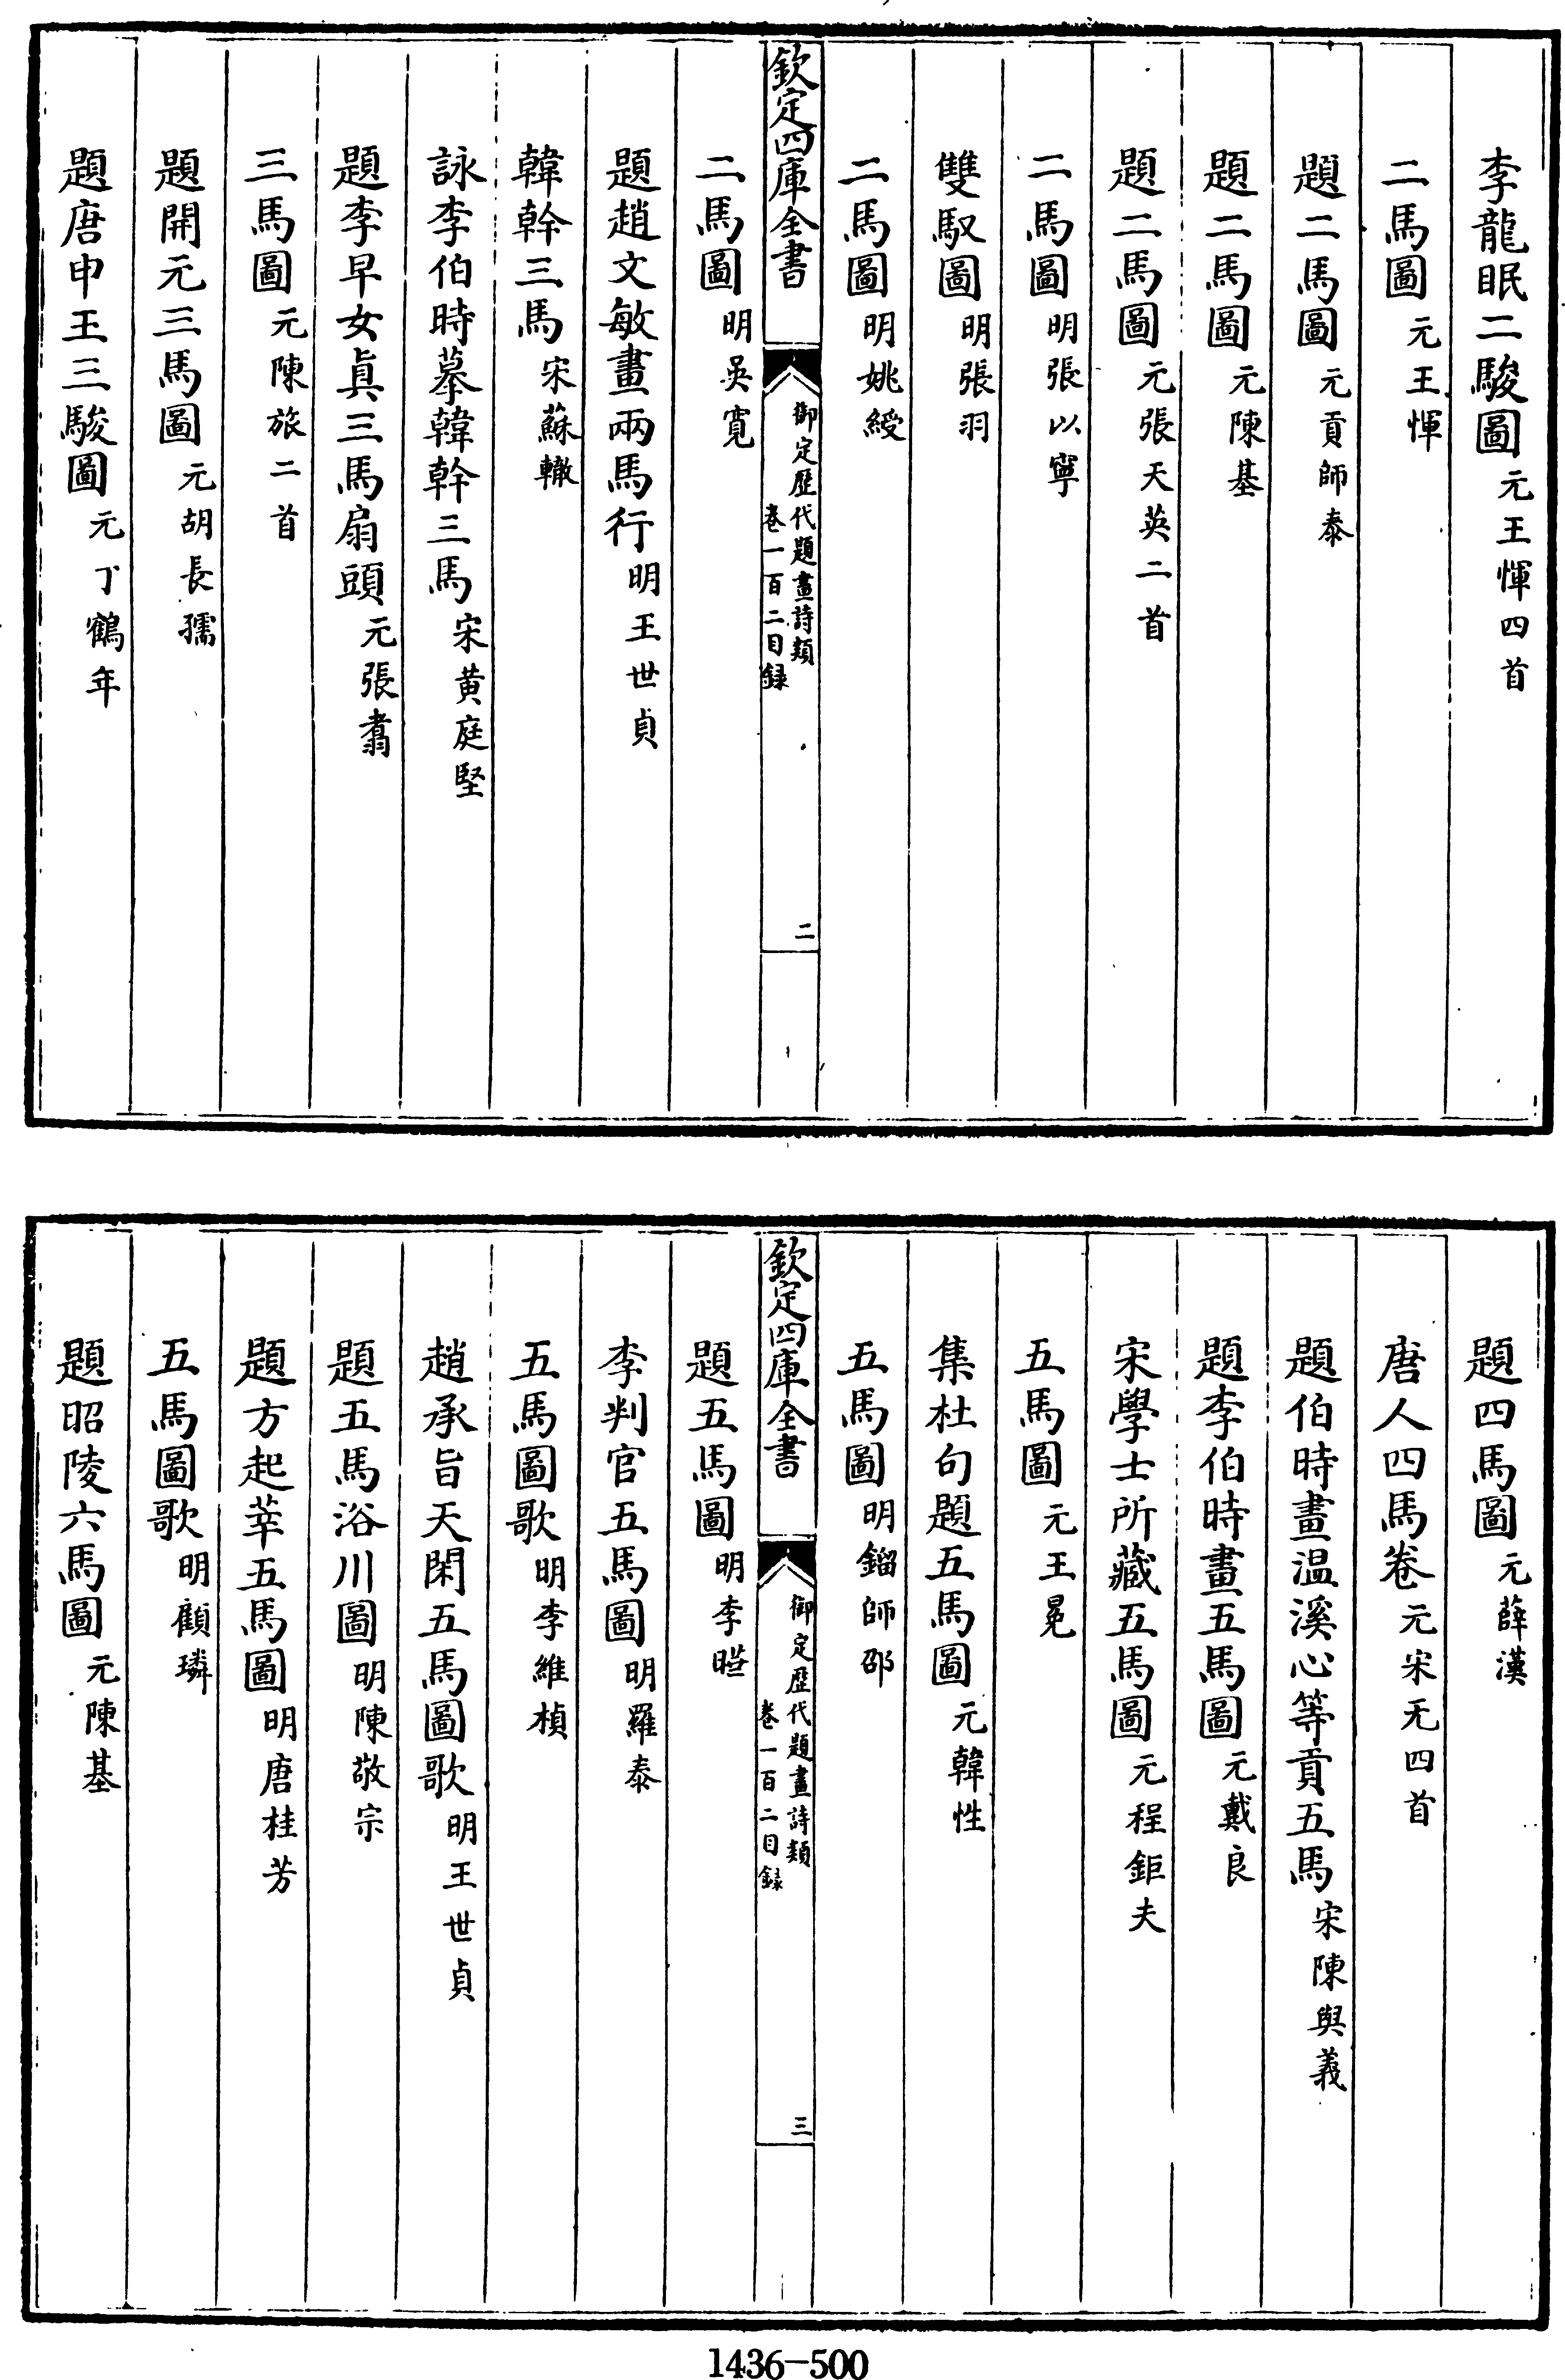 李龍眠二駿圖元王惲四首
二馬圖元王惲
題二馬圖元貢師泰
題二馬圖元陳基
題二馬圖元張天英二首
二馬圖明張以寧
雙馭圖明張羽
二馬圖明姚綬
欽定四庫全書
御定歷代題畫詩類
卷一百二目録
二
二馬圖明吳寛
題趙文敏畫兩馬行明王世貞
韓幹三馬宋蘇轍
詠李伯時摹韓幹三馬宋黃庭堅
題李早女真三馬扇頭元張翥
三馬圖元陳旅二首
題開元三馬圖元胡長孺
題唐申王三駿圖元丁鶴年
題四馬圖元薛漢
唐人四馬卷元宋无四首
題伯時畫温溪心等貢五馬宋陳與義
題李伯時畫五馬圖元戴良
宋學士所藏五馬圖元程鉅夫
五馬圖元王冕
集杜句題五馬圖元韓性
五馬圖明鎦師邵
欽定四庫全書
御定歷代題畫詩類
卷一百二目録
三
題五馬圖明李曄
李判官五馬圖明羅泰
五馬圖歌明李維楨
趙承旨天閑五馬圖歌明王世貞
題五馬浴川圖明陳敬宗
題方起莘五馬圖明唐桂芳
五馬圖歌明顧璘
題昭陵六馬圖元陳基
1436-500